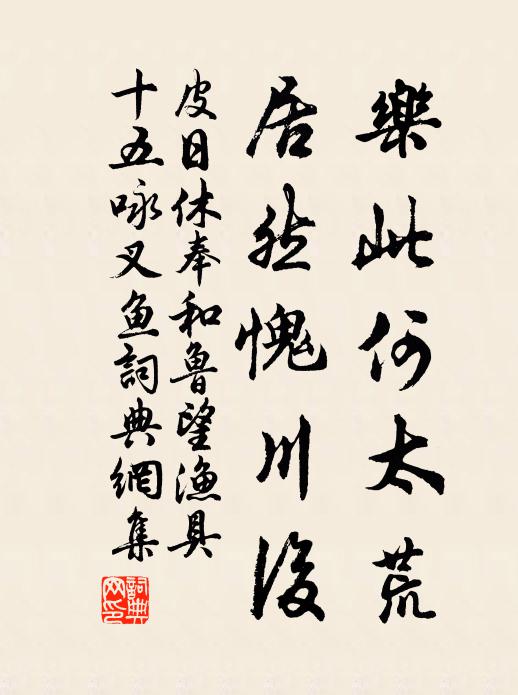 樂此何太荒
居然愧川後
皮日休奉和魯望漁具
十五咏叉魚詞典網集
詞典网印